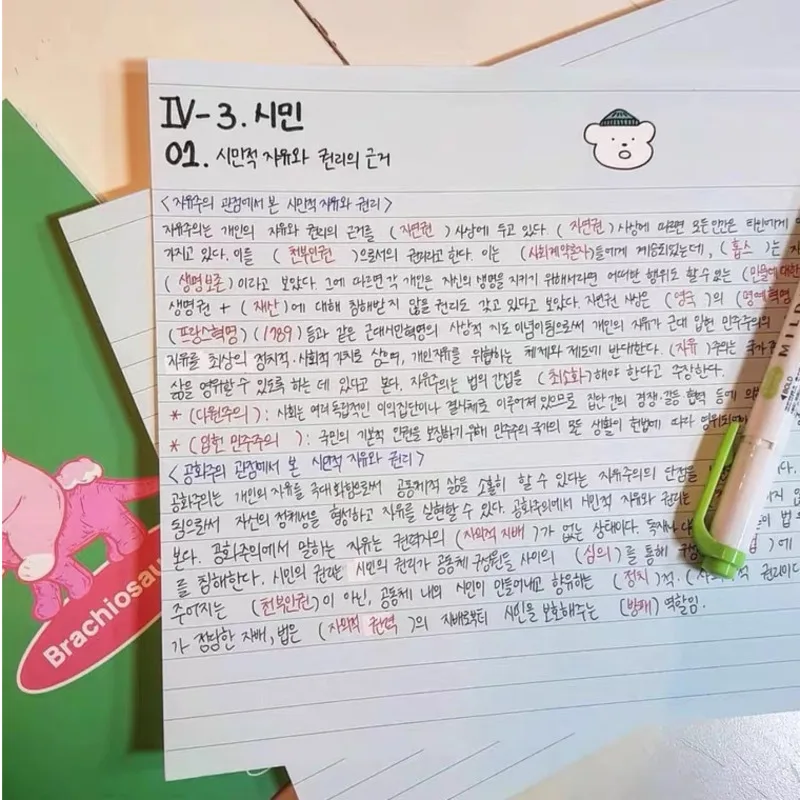 IV-3. 시민
01. 시민적 자유와 권리의 근거
<자유주의 관점에서 본 시민적 자유와 권리>
자유주의는 개인의 자유와 권리의 근거를 (자연권) 사상에 두고 있다. (자연권) 사상에 따르면 모든 인간은 타인에게
가지고 있다. 이를 (천부인권)으로서의 권리라고 한다. 이는 (사회계약론자)들에게 계승되었는데, (홉스)는
(생명보존)이라고 보았다. 그에 따르면 각 개인은 자신의 생명을 지키기 위해서라면 어떠한 행위도 할 수 있는 (만물에 대한
생명권 + (재산)에 대해 침해받지 않을 권리도 갖고 있다고 보았다. 자연권 사상은 (영국)의 (명예혁명
(프랑스혁명) (1789) 등과 같은 근대시민혁명의 사상적 지도 이념이 됨으로써 개인의 자유가 근대 입헌 민주주의의
자유를 최상의 정치적·사회적 가치로 삼으며, 개인자유를 위협하는 체제와 제도에 반대한다. (자유)주의는 국가
삶을 영위할 수 있도록 하는 데 있다고 본다. 자유주의는 법의 간섭을 (최소화)해야 한다고 주장한다.
* (다원주의): 사회는 여러 독립적인 이익집단이나 결사체로 이루어져 있으므로 집단 간의 경쟁·갈등·협력 등에 의
* (입헌 민주주의): 국민의 기본적 인권을 보장하기 위해 민주주의 국가의 모든 생활이 헌법에 따라 영위되어야
<공화주의 관점에서 본 시민적 자유와 권리>
공화주의는 개인의 자유를 극대화함으로써 공동체적 삶을 소홀히 할 수 있다는 자유주의의 단점을
됨으로써 자신의 정체성을 형성하고 자유를 실현할 수 있다. 공화주의에서 시민적 자유와 권리는 지 않
본다. 공화주의에서 말하는 자유는 권력자의 (자의적 지배)가 없는 상태이다. 독재나 의 법
를 침해한다. 시민의 권리는 시민의 권리가 공동체 구성원들 사이의 (심의)를 통해 에
주어지는 (천부인권)이 아닌, 공동체 내의 시민이 만들어내고 향유하는 (정치)적· 적 권리이다
가 정당한 지배, 법은 (자의적 권력)의 지배로부터 시민을 보호해주는 (방패) 역할임.
Brachiosau
MILD